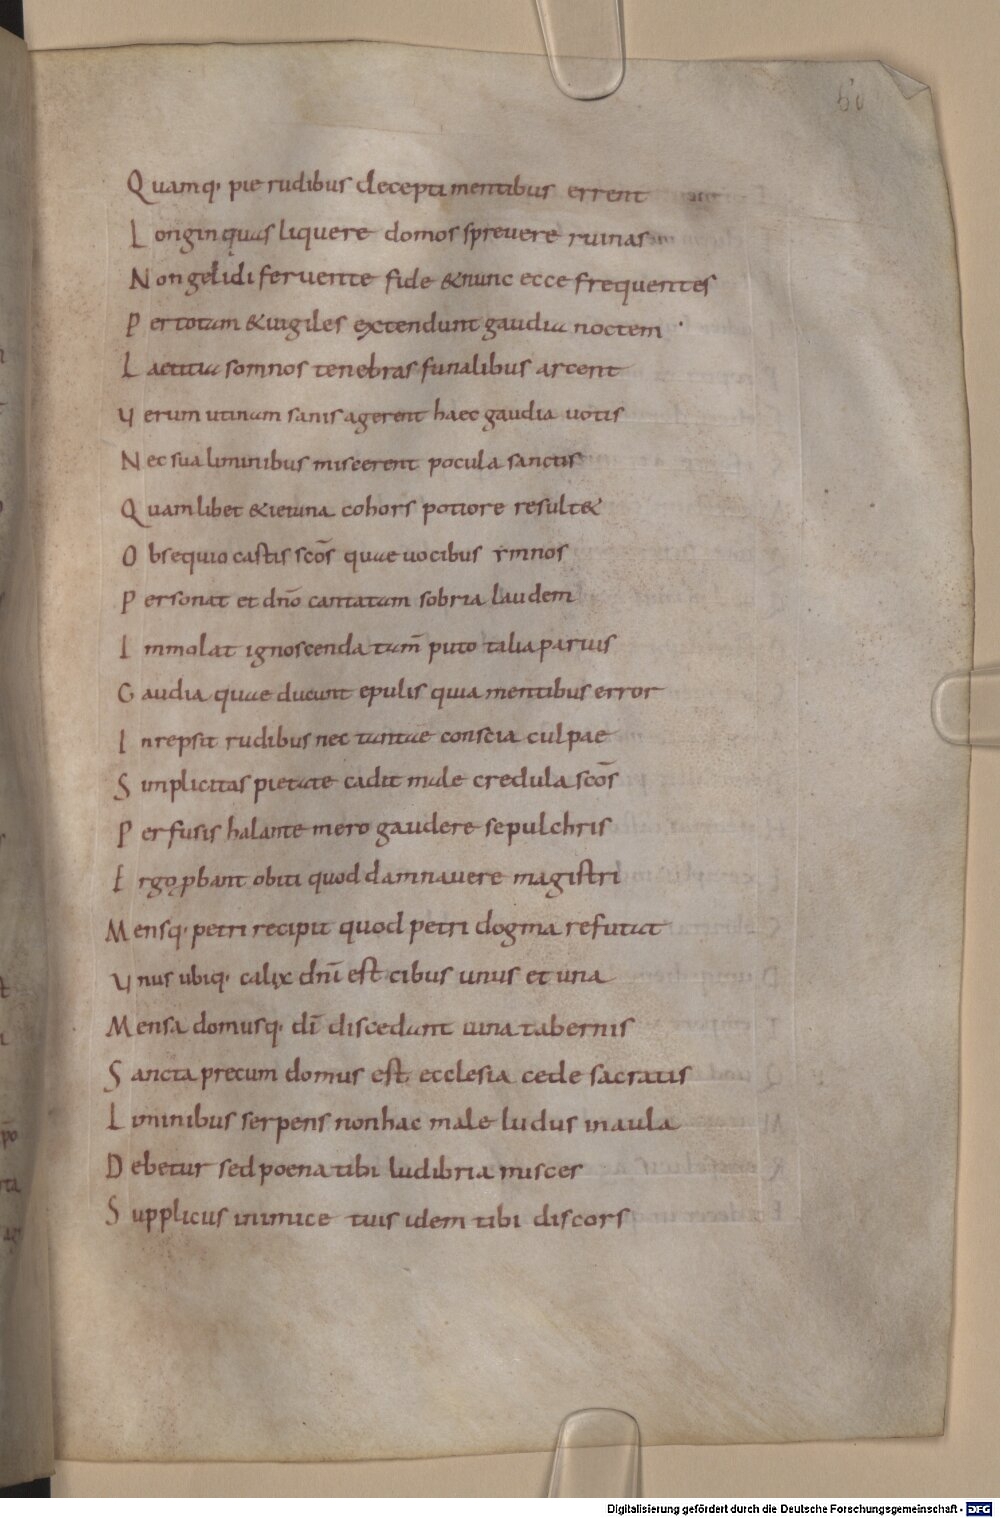 50
Quamq· pie rudibus decepti mentibus errent
Longinquas liquere domos sprevere ruinas
Non gelidi fervente fide & nunc ecce frequentes
Per totam & vigiles extendunt gaudia noctem ·
Laetitia somnos tenebras funalibus arcent
Verum utinam sanis agerent haec gaudia votis
Nec sua liminibus miscerent pocula sanctis
Quamlibet & ieiuna cohors potiore result&
Obsequio castis scōs quae vocibus ymnos
Personat et dnō cantatam sobria laudem
Immolat ignoscenda tam̄ puto talia parvis
Gaudia quae ducunt epulis quia mentibus error
Inrepsit rudibus nec tantae conscia culpae
Simplicitas pietate cadit male credula scōs
Perfusis halante mero gaudere sepulchris
Ergo ꝓbant obiti quod damnavere magistri
Mensq· petri recipit quod petri dogma refutat
Vnus ubiq· calix dnī est cibus unus et una
Mensa domusq· dī discedant vina tabernis
Sancta precum domus est ecclesia cede sacratis
Liminibus serpens non hac male ludus in aula
Debetur sed poena tibi ludibria misces
Supplicus inimice tuis idem tibi discors
Digitalisierung gefördert durch die Deutsche Forschungsgemeinschaft - DFG